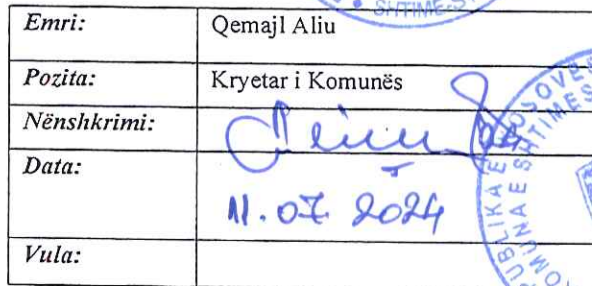 SHTIME-S
Emri: Qemajl Aliu
Pozita: Kryetar i Komunës
Nënshkrimi:
Data: 11.07.2024
Vula: